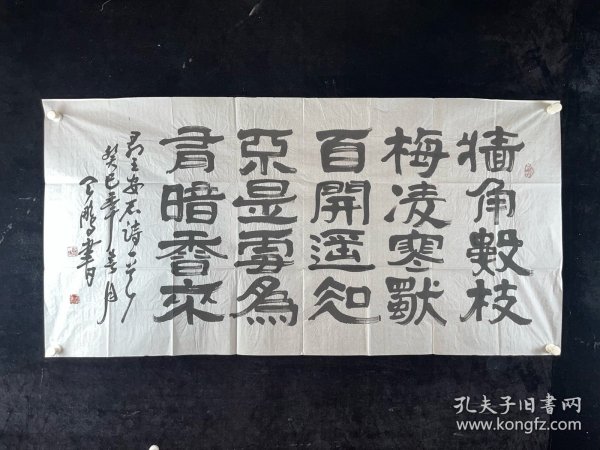 牆角數枝
梅凌寒獸
百開遥知
不是雪為
有暗香來
录王安石诗一首
癸巳年春月
鹏書
孔夫子旧书网
www.kongfz.com